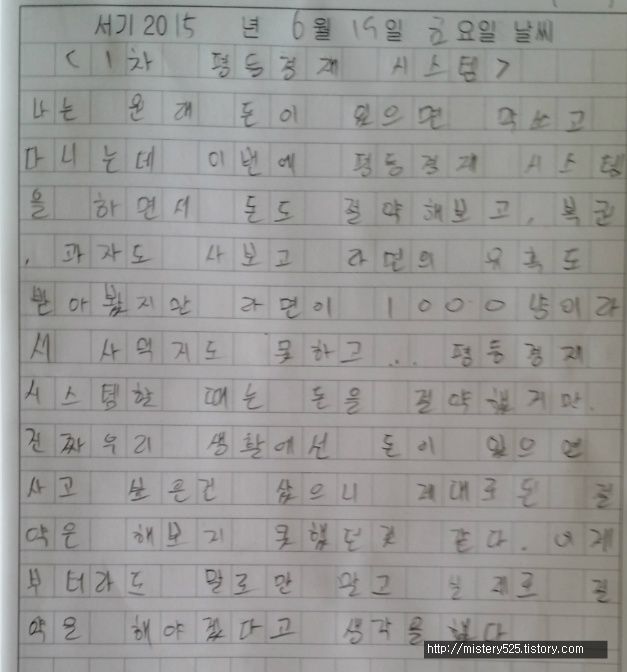 서기 2015 년 6월 19일 금요일 날씨
< 1차 평등경제 시스템 >
나는 원래 돈이 있으면 막쓰고
다니는데 이번에 평등경제 시스템
을 하면서 돈도 절약해보고, 복권
, 과자도 사보고 라면의 유혹도
받아봤지만 라면이 1000냥이라
서 사먹지도 못하고... 평등경제
시스템할 때는 돈을 절약했지만.
진짜우리 생활에선 돈이 있으면
사고 싶은건 샀으니 제대로된 절
약은 해보지 못했던것 같다. 이제
부터라도 말로만 말고 실제로 절
약을 해야겠다고 생각을 했다
http://mistery525.tistory.com